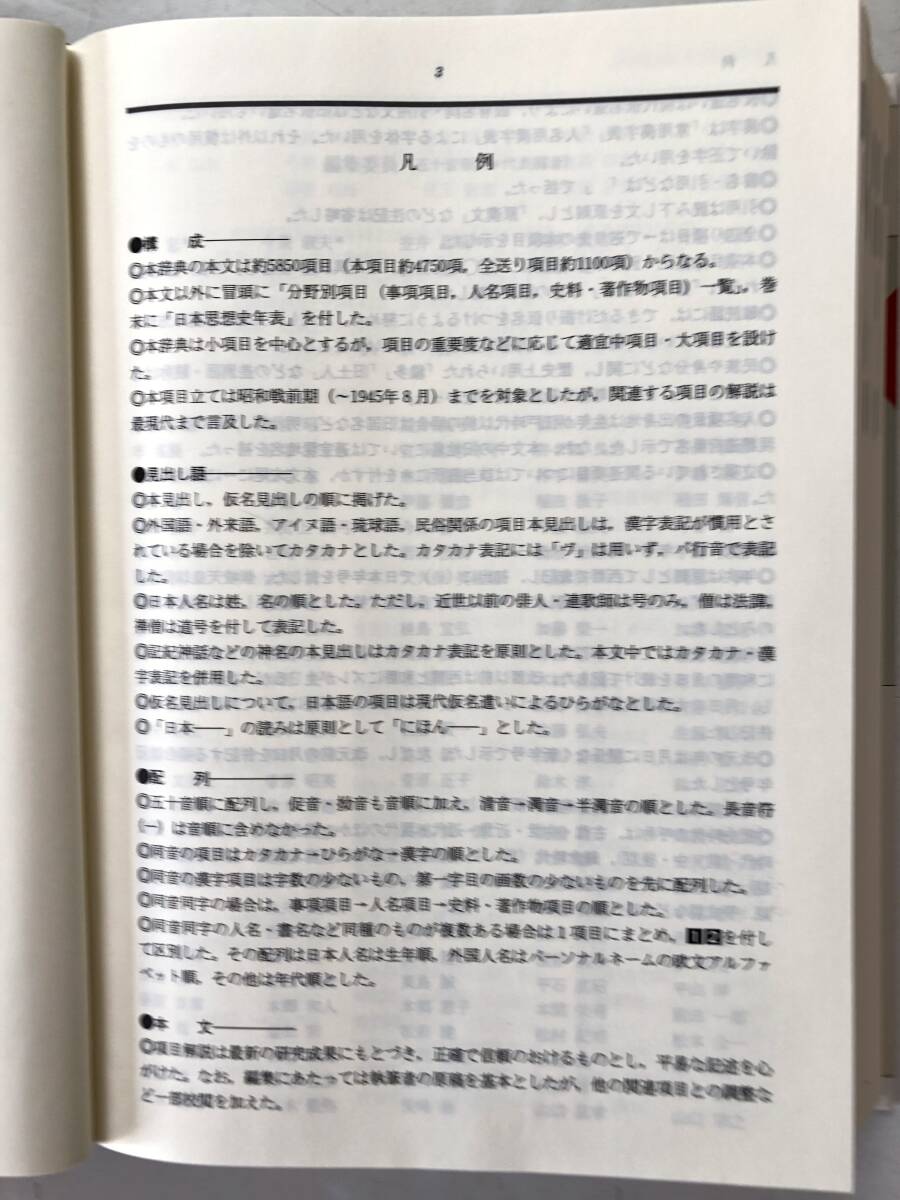 3
凡　例
●構　成――――
◎本辞典の本文は約5850項目（本項目約4750項，全送り項目約1100項）からなる。
◎本文以外に冒頭に「分野別項目（事項項目，人名項目，史料・著作物項目）一覧」，巻
末に「日本思想史年表」を付した。
◎本辞典は小項目を中心とするが，項目の重要度などに応じて適宜中項目・大項目を設け
た。
◎本項目立ては昭和戦前期（～1945年８月）までを対象としたが，関連する項目の解説は
最現代まで言及した。
●見出し語――――
◎本見出し，仮名見出しの順に掲げた。
◎外国語・外来語，アイヌ語・琉球語，民俗関係の項目本見出しは，漢字表記が慣用とさ
れている場合を除いてカタカナとした。カタカナ表記には「ヴ」は用いず，バ行音で表記
した。
◎日本人名は姓，名の順とした。ただし，近世以前の俳人・連歌師は号のみ，僧は法諱，
禅僧は道号を付して表記した。
◎記紀神話などの神名の本見出しはカタカナ表記を原則とした。本文中ではカタカナ・漢
字表記を併用した。
◎仮名見出しについて，日本語の項目は現代仮名遣いによるひらがなとした。
◎「日本――」の読みは原則として「にほん――」とした。
●配　列――――
◎五十音順に配列し，促音・拗音も音順に加え，清音→濁音→半濁音の順とした。長音符
（ー）は音順に含めなかった。
◎同音の項目はカタカナ→ひらがな→漢字の順とした。
◎同音の漢字項目は字数の少ないもの，第一字目の画数の少ないものを先に配列した。
◎同音同字の場合は，事項項目→人名項目→史料・著作物項目の順とした。
◎同音同字の人名・書名など同種のものが複数ある場合は１項目にまとめ，12を付し
て区別した。その配列は日本人名は生年順，外国人名はパーソナルネームの欧文アルファ
ベット順，その他は年代順とした。
●本　文――――
◎項目解説は最新の研究成果にもとづき，正確で信頼のおけるものとし，平易な記述を心
がけた。なお，編集にあたっては執筆者の原稿を基本としたが，他の関連項目との調整な
ど一部校閲を加えた。